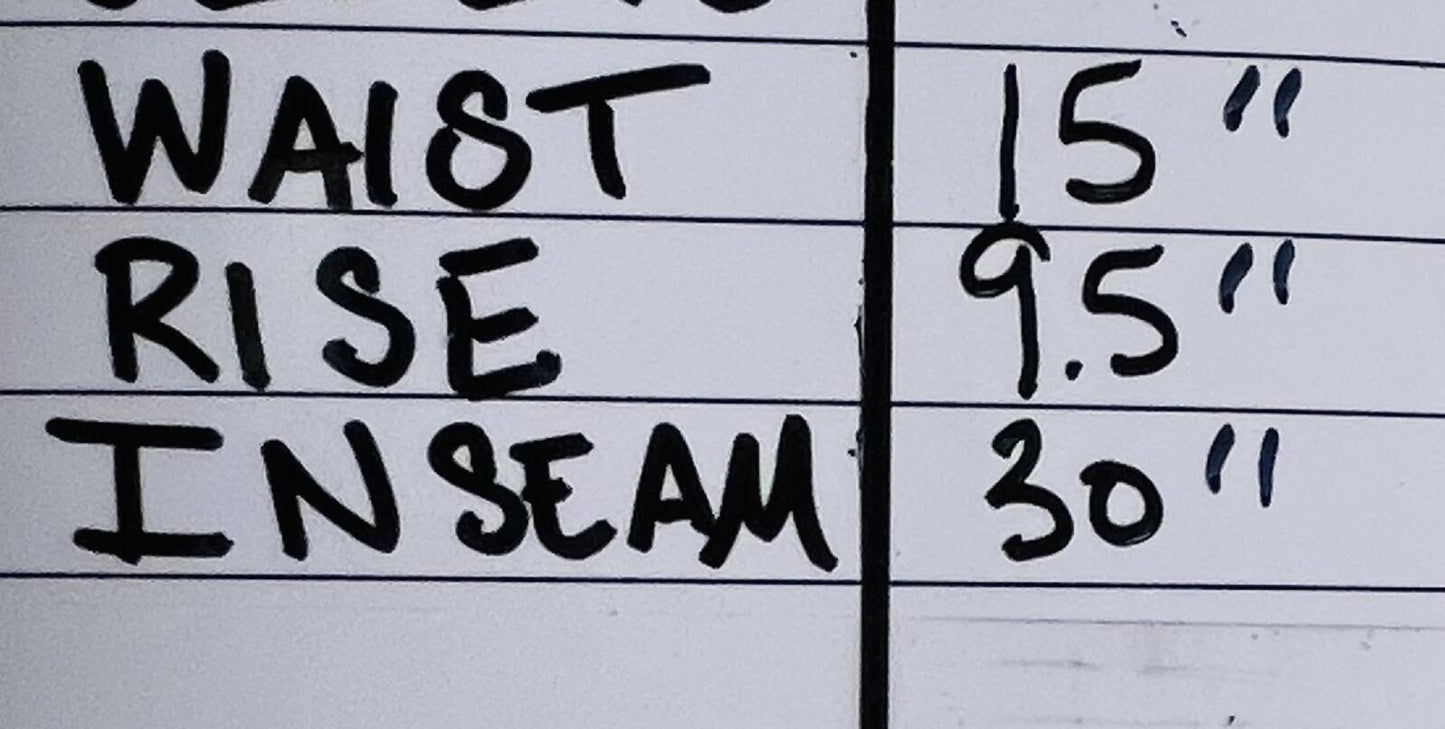 WAIST 15"
RISE 9.5"
INSEAM 30"